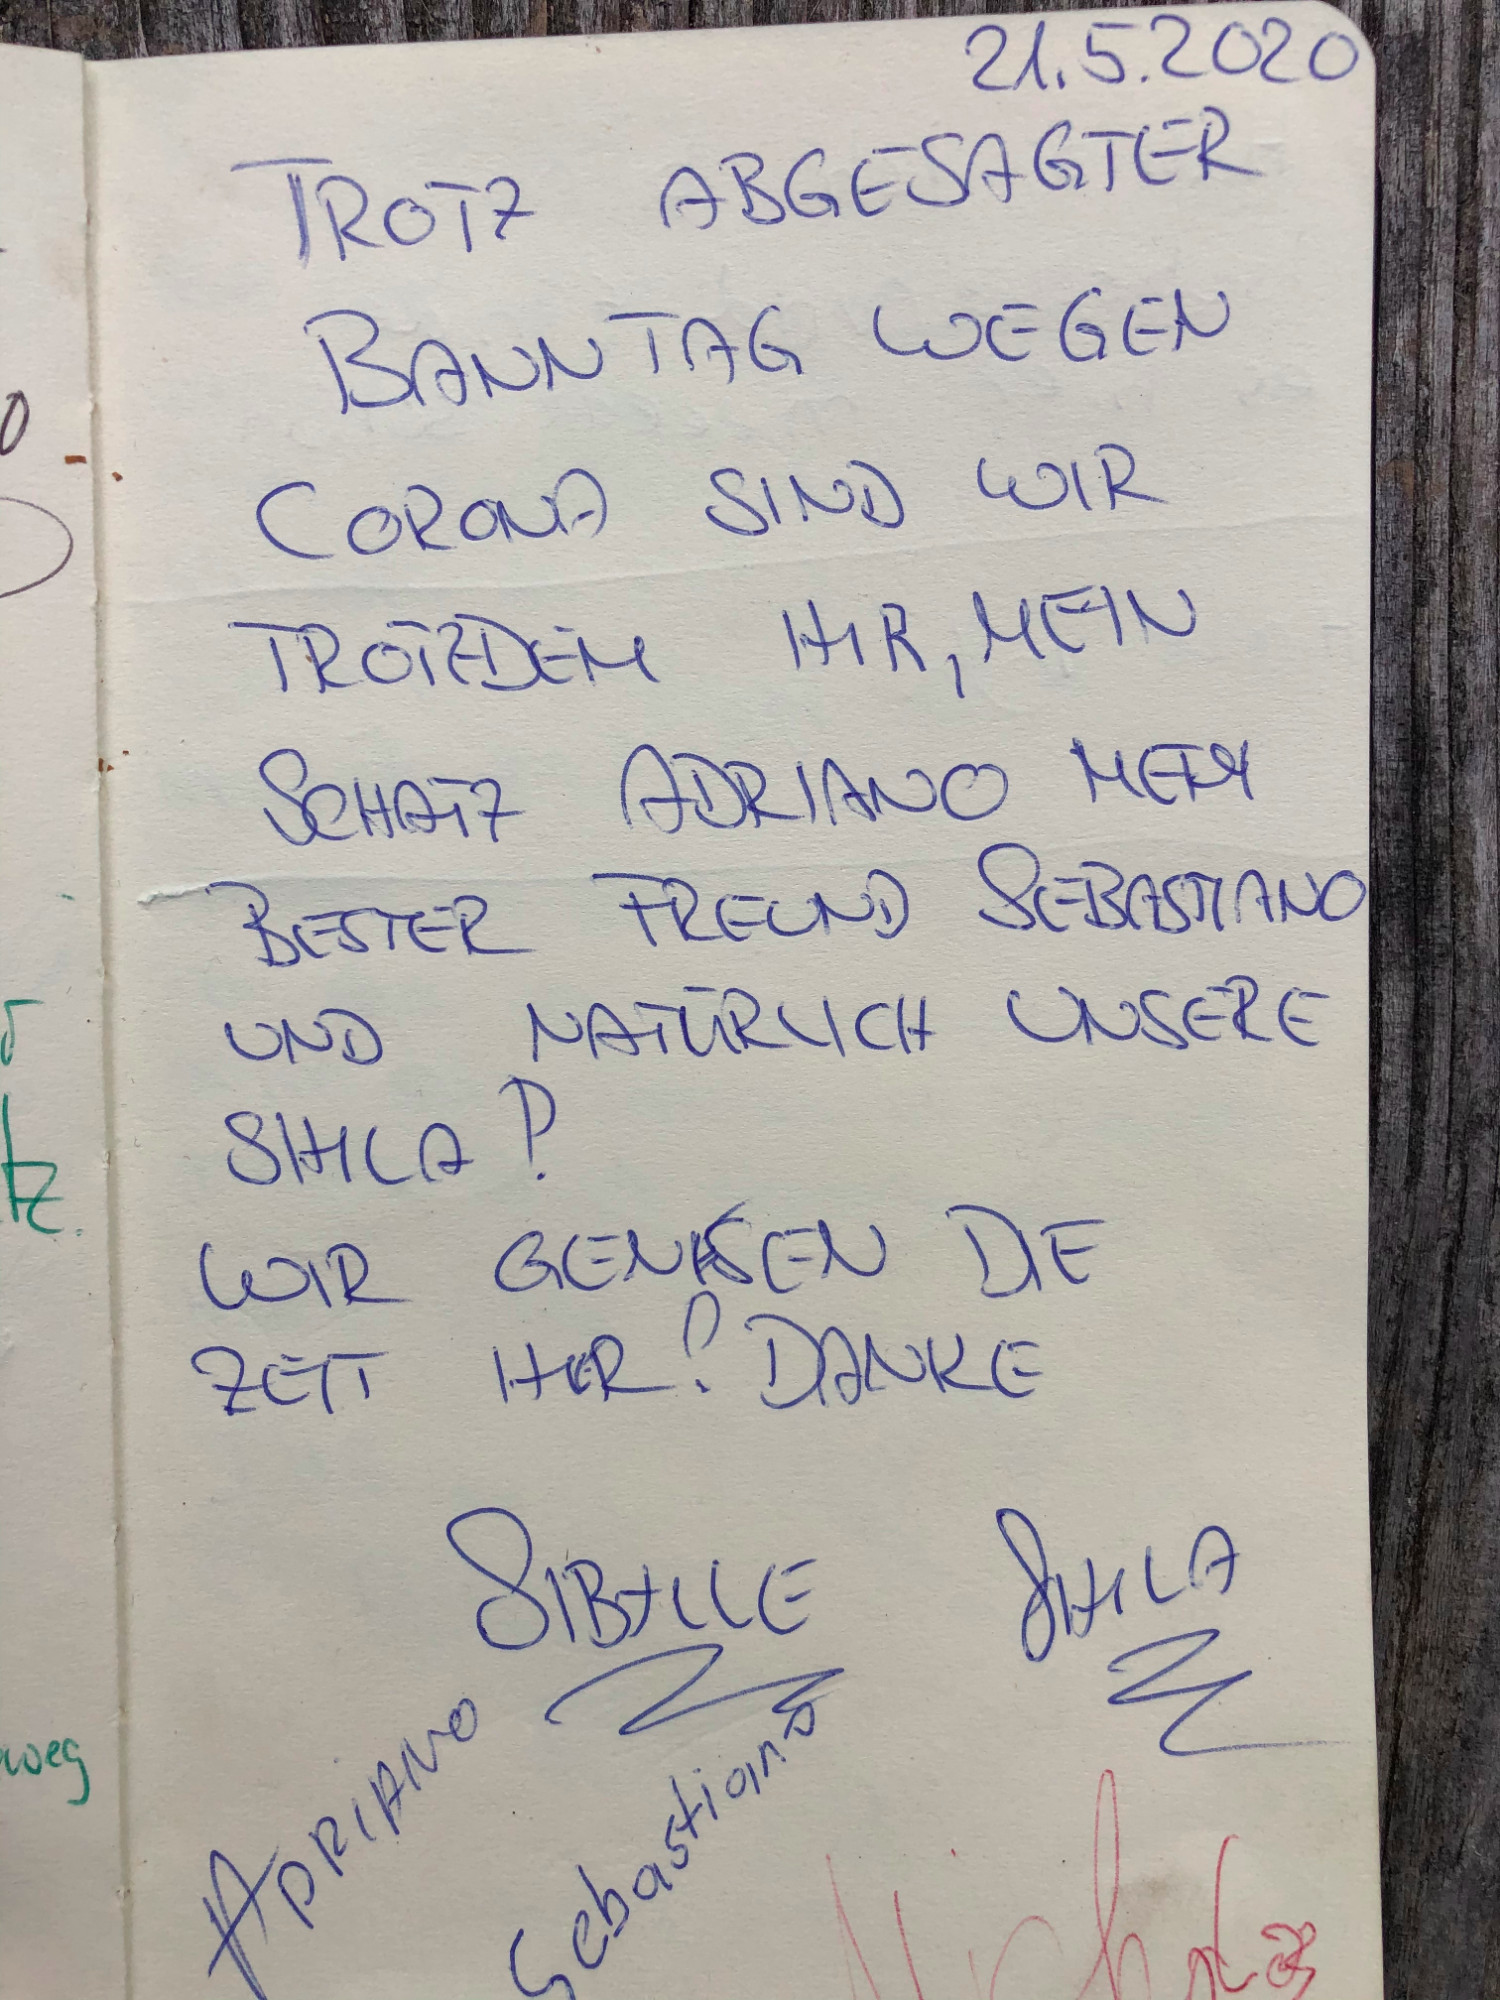 21.5.2020
TROTZ ABGESAGTER
BANNTAG WEGEN
CORONA SIND WIR
TROTZDEM HIR, MEIN
SCHATZ ADRIANO MEIN
BESTER FREUND SEBASTIANO
UND NATÜRLICH UNSERE
SHILA!
WIR GENISEN DIE
ZEIT HIER! DANKE
SIBYLLE SHILA
ADRIANO
Sebastiano
Nicholas
tz.
weg